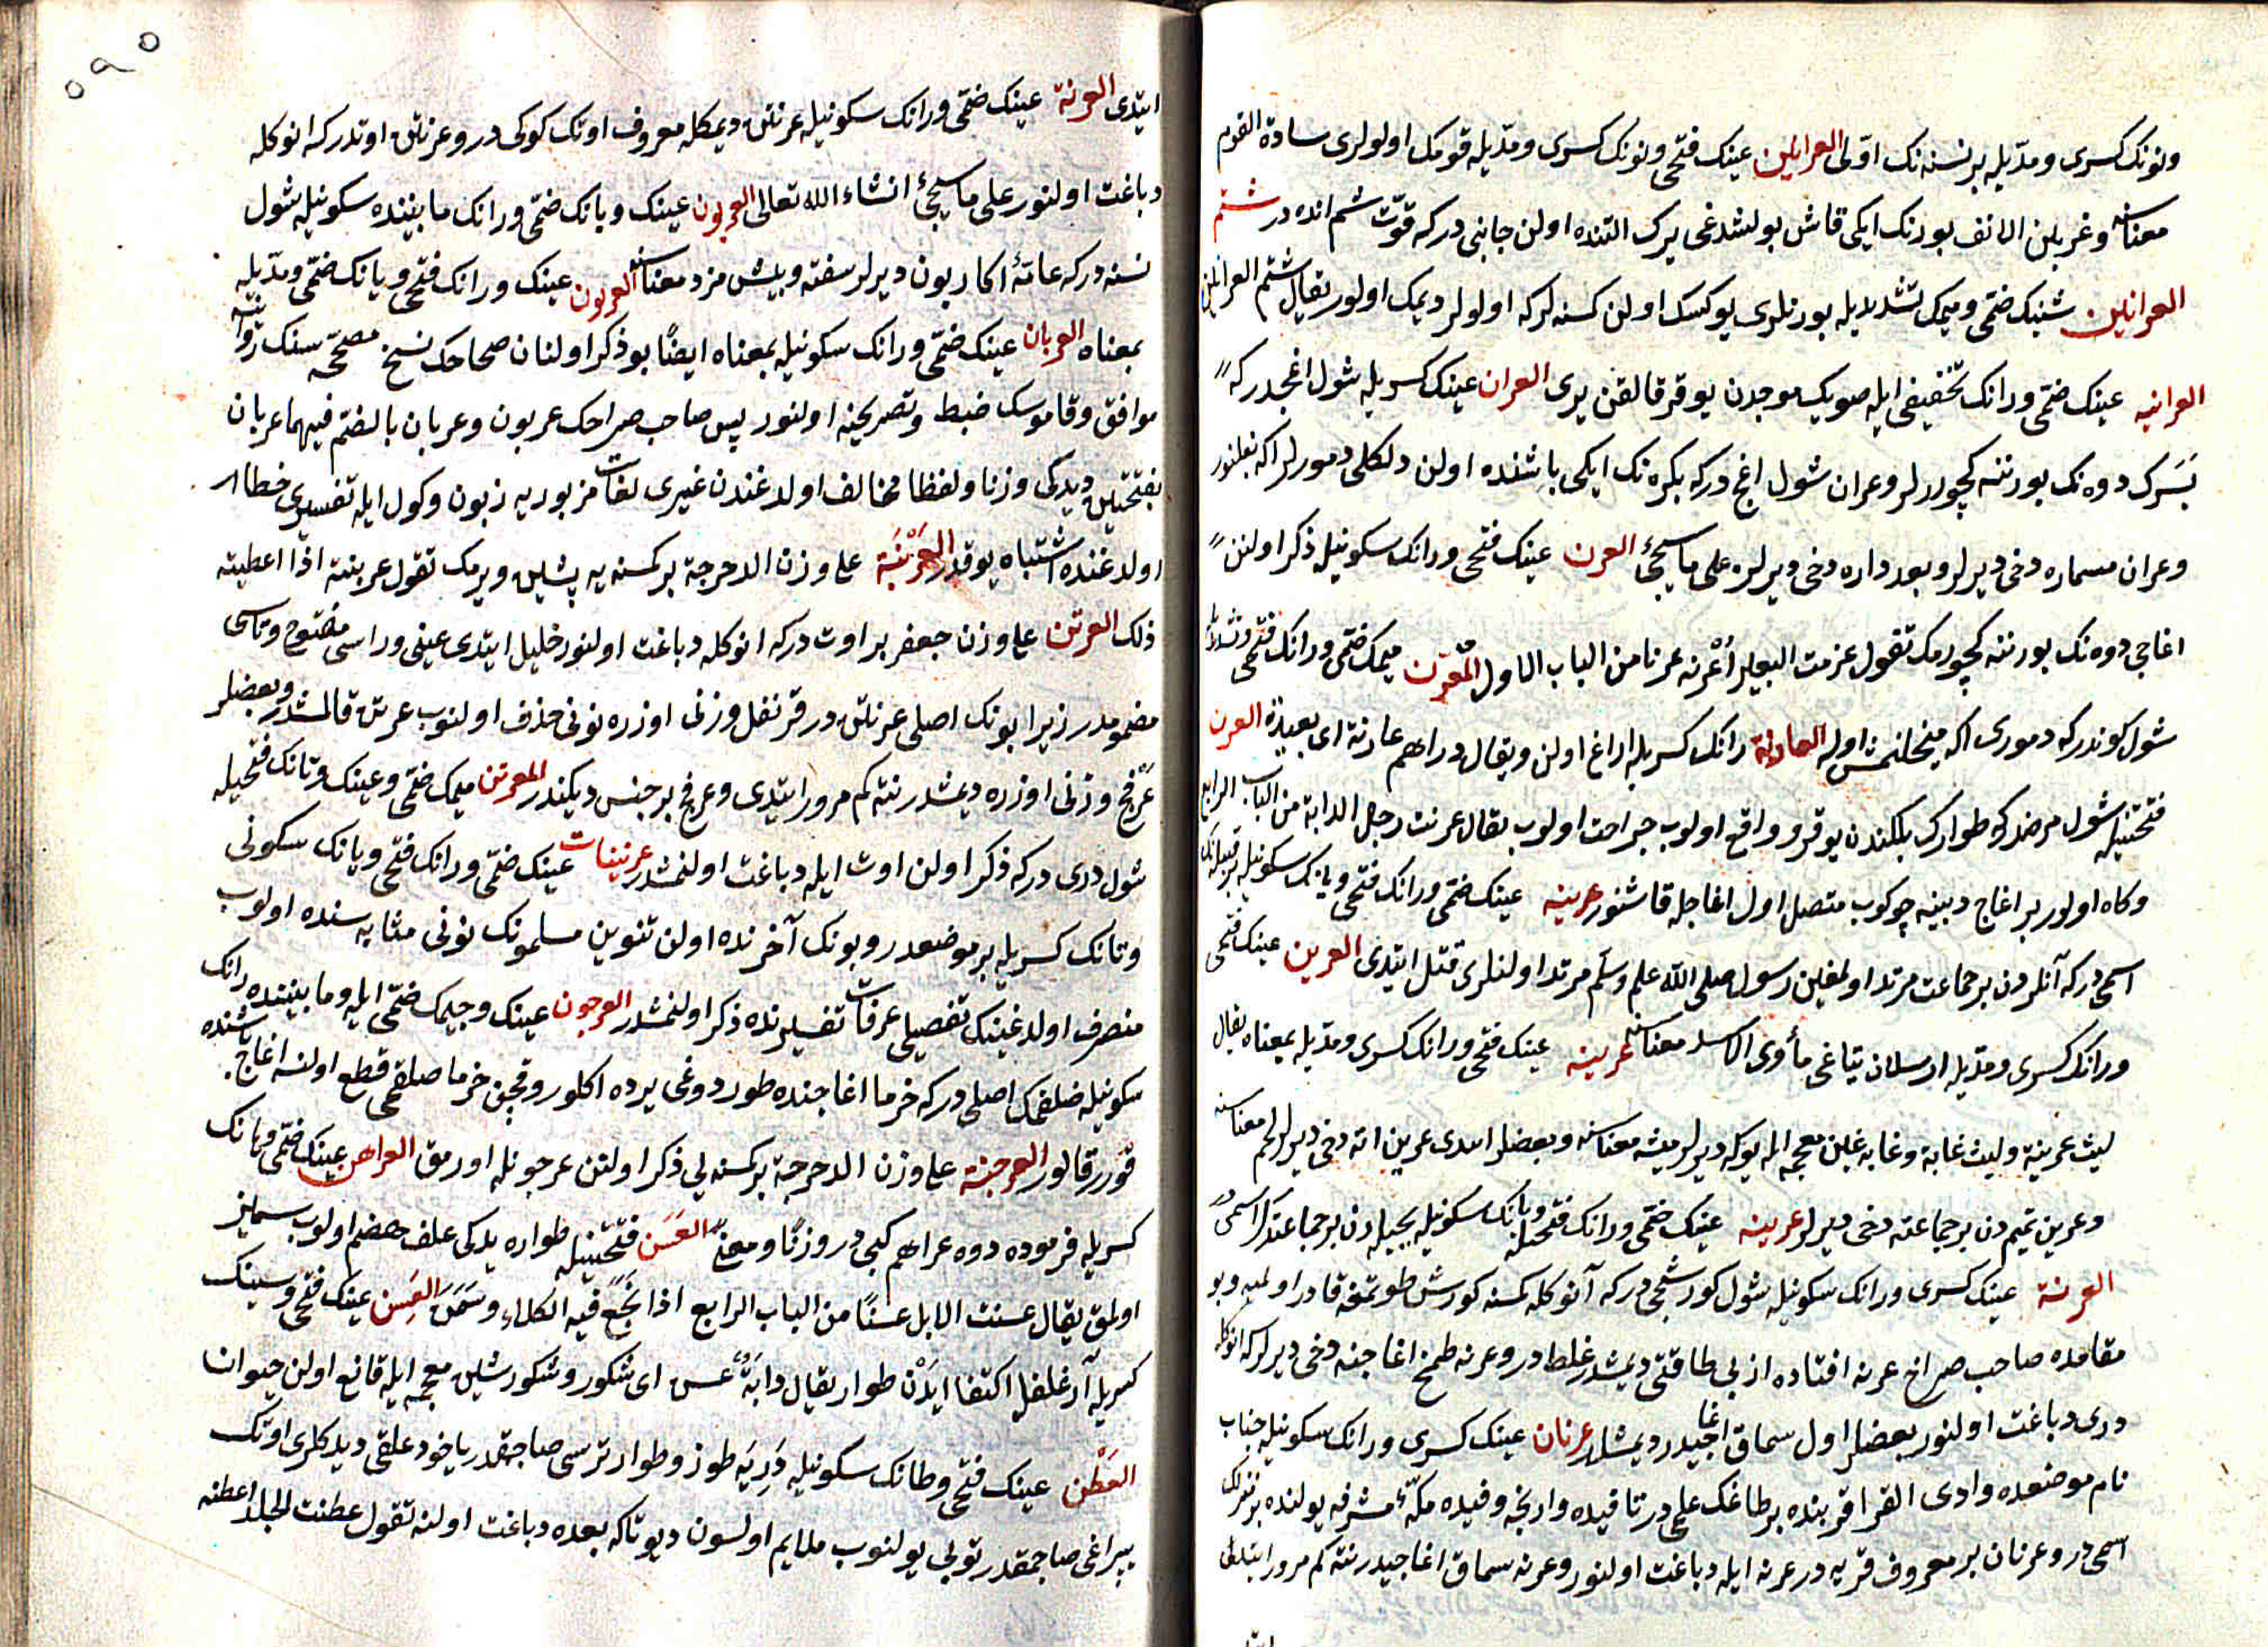 ونونك كسرى ومدّيله برنسنه نك اوّلى العرانين عينك فتحى ونونك كسرى ومدّيله قومك اولولرى سادة القوم
معناسنه وعرنين الانف بورنك ايكى قاش بولشدغى يرك التنده اولن جانبى دركه قوّت شم انده در شتم
العرانين شينك ضمّى وميمك تشديديله بورنلرى يوكسك اولن كسنه لركه اولولر ديمك اولور يقال شتم العرانين
العرانيه عينك ضمّى ورانك تخفيفى ايله صويك موجدن يوقرو قالقن يرى العران عينك كسريله شول اغجدركه
بَسَرك دوه نك بورننه كچوررلر وعران شول اغج دركه بكره نك ايكى باشنده اولن دلكلى دمورلر اكه بغلنور
وعران مسماره دخى ديرلر وبعد داره دخى ديرلر على ما سيجئ العرن عينك فتحى ورانك سكونيله ذكر اولنن
اغاجى دوه نك بورننه كچورمك تقول عرنت البعير أعْرنه عرنا من الباب الاول المعّرن ميمك ضمّى ورانك فتحى وتشديديله
شول كوندركه دمورى اكه ميخلنمش اوله العارنة رانك كسريله ايراغ اولن ويقال دراهم عارنة اى بعيدة العرن
فتحتينله شول مرضدركه طوارك بلكندن يوقرو واقع اولوب جراحت اولوب يقال عرنت رجل الدابة من الباب الرابع
وكاه اولور بر اغاج دبينه چوكوب متصل اول اغاجله قاشنور عرينه عينك ضمّى ورانك فتحى ويانك سكونيله بر قبيله نك
اسمى دركه آنلردن برجماعت مرتد اولمغين رسول صلى الله عليه وسلم مرتد اولنلرى قتل ايتدى العرين عينك فتحى
ورانك كسرى ومدّيله ارسلان يتاغى مأوى الاسد معناسنه عرينه عينك فتحى ورانك كسرى ومدّيله بمعناه يقال
ليث عرينة وليث غابة وغابه غين معجمه ايله بوكه ديرلر ميشه معناسنه وبعضلر ايتدى عرين اته دخى ديرلر لحم معناسنه
وعرين تميم دن برجماعته دخى ديرلر عرينه عينك ضمّى ورانك فتحيله ويانك سكونيله بجيله دن برجماعتك اسمى در
العرنة عينك كسرى ورانك سكونيله شول كورشجى دركه آنوكله كمسنه كورش طوتمغه قادر اولميه وبو
مقامده صاحب صراح عرنه افتاده از بى طاقتى ديمشدر غلطدر وعرنه طمخ اغاجنه دخى ديرلركه انوكله
درى دباغت اولنور بعضلر اول سماق اغاجيدر ديمشلر عرنان عينك كسرى ورانك سكونيله جناب
نام موضعده وادى القرا قربنده برطاغك علمى در تا فيده وارنجه وفيده مكّۀ مشرفه يولنده برمنزلك
اسمى در وعرنان بر معروف قريه در عرنه ايله دباغت اولنور وعرنه سماق اغاجيدر نته كم مرور ايتدى
ايتدى العرنة عينك ضمّى ورانك سكونيله عرنتن ديمكله معروف اوتك كوكى در وعرنتن اوتدركه انوكله
دباغت اولنور على ما سيجئ انشاء الله تعالى العربون عينك وبانك ضمّى ورانك مابيننده سكونيله شول
نسنه دركه عامّۀ اكا ربون ديرلر سفته وپيش مزد معناسنه العربون عينك ورانك فتحى وبانك ضمّى ومدّيله
بمعناه العربان عينك ضمّى ورانك سكونيله بمعناه ايضًا بو ذكر اولنان صحاحك نسخ مصحّحه سنك روايتنه
موافق وقاموسك ضبط وتصريحنه اولنور پس صاحب صراحك عربون وعربان بالضمّ فيهما عربان
بفتحتين ديدكى وزنا ولفظا مخالف اولدغندن غيرى لغات مزبوريه زبون وكول ايله تفسيرى خطا
اولدغنده اشتباه يوقدر العَرْبَنَة على وزن الدحرجة بر كمسنه يه پشين ويرمك تقول عربنته اذا اعطيته
ذلك العرتن على وزن جعفر بر اوت دركه انوكله دباغت اولنور خليل ايتدى عينى وراسى مفتوح وتاسى
مضمومدر زيرا بونك اصلى عرنتن در قرنفل وزنى اوزره نونى حذف اولنوب عرتن قالمشدر وبعضلر
عرفج وزنى اوزره ديمشدر نته كم مرور ايتدى وعرفج بر جنس ديكندر المعرتن ميمك ضمّى وعينك وتانك فتحيله
شول درى دركه ذكر اولن اوت ايله دباغت اولنمشدر عرتينات عينك ضمّى ورانك فتحى ويانك سكونى
وتانك كسريله بر موضعدر وبونك آخرنده اولن تنوين مسلمونك نونى مثابه سنده اولوب
منصرف اولدغينك تفصيلى عرفات تفسيرنده ذكر اولنمشدر العرجون عينك وجيمك ضمّى ايله ومابيننده رانك
سكونيله ضلقمك اصلى دركه خرما اغاجنده طوردوغى يرده اكلور وقچن خرما صلقمى قطع اولنسه اغاج باشنده
قورر قالور العرجنة على وزن الدحرجة بر كمسنه يى ذكر اولنن عرجونله اورمق العراهن عينك ضمّى وهانك
كسريله فرموده دوه عراهم كبى در وزنًا ومعنًا العَسَن فتحتينله طواره يدكى علف هضم اولوب سمايز
اولمق يقال عسنت الابل عسنًا من الباب الرابع اذا نَجَعَ فيه الكلاء وسَمَنَ العَسِن عينك فتحى وسينك
كسريله آز علفله اكتفا ايدَنْ طوار يقال دابَّةٌ عسن اى شكور وشكور شين معجمه ايله قانع اولن حيوان
العَطْن عينك فتحى وطانك سكونيله دَرِيَه طوز وطوار ترسى صاچمقدر ياخود علقى ديدكلرى اوتك
يپراغى صاچمقدر تويى يولنوب ملايم اولسون ديو تاكه بعده دباغت اولنه تقول عطنت الجلد اعطنه